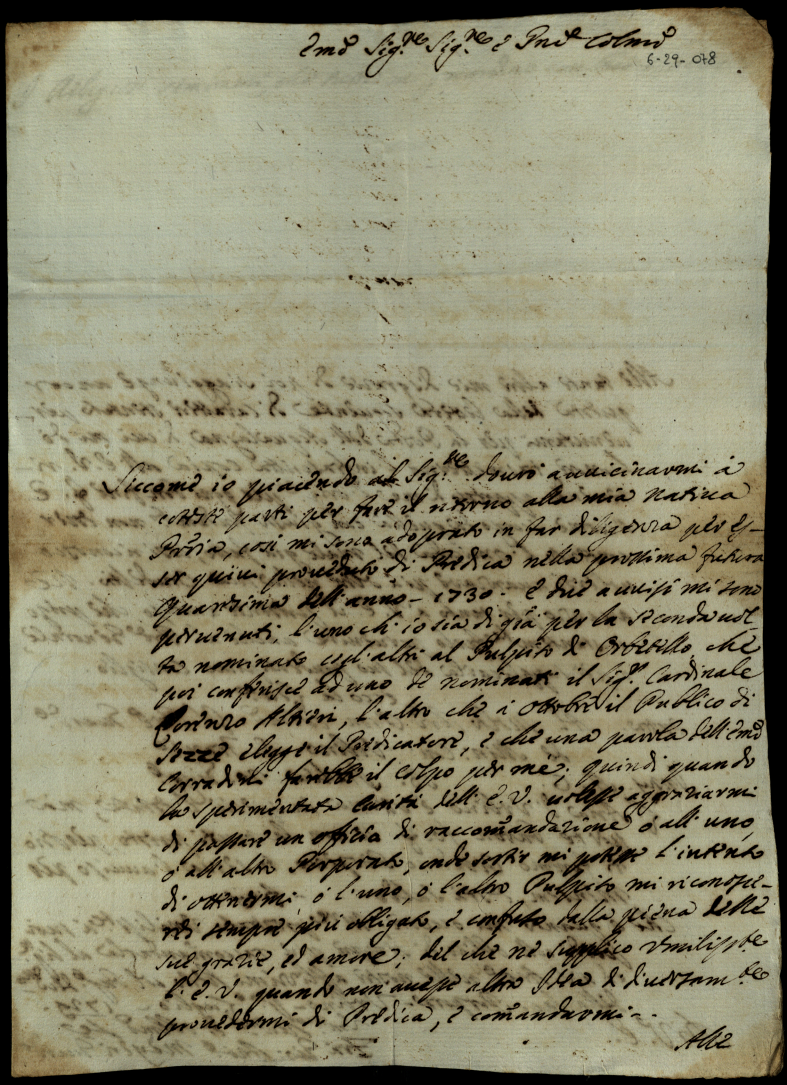 Emo Sig.re Sig.re e Pne Colmo
6-29-078
Siccome io piacendo al Sig.re dourò auuicinarmi à
coteste parti per fare il ritorno alla mia natiua
Pr̃ia, così mi sono adoprato in far diligenza per es-
ser quiui proueduto di Predica nella prossima futura
Quaresima dell'anno - 1730. e due auuisi mi sono
peruenuti, l'uno ch'io sia di già per la seconda uol-
ta nominato cogl'altri al Pulpito di Orbetello, che
poi conferisce ad uno de nominati il Sig.r Cardinale
Lorenzo Altieri, l'altro che i ottobre il Publico di
Sezze elegge il Predicatore, e che una parola dell'Emo
Corradini farebbe il colpo per me; quindi quando
la sperimentata Carità dell'E.V. uolesse aggraziarmi
di passare un officio di raccomãndazione ò all'uno,
ò all'altro Porporato, onde sortir mi potesse l'intento
di ottenermi ò l'uno, ò l'altro Pulpito mi riconosce-
rei sempre più obligato, e confuso dalla piena delle
sue grazie, ed amore; del che ne supplico Vmiliss.te
l'E.V. quando non auesse altra Idea di diuersam.te
prouedermi di Predica, e comãndarmi -.
Alle